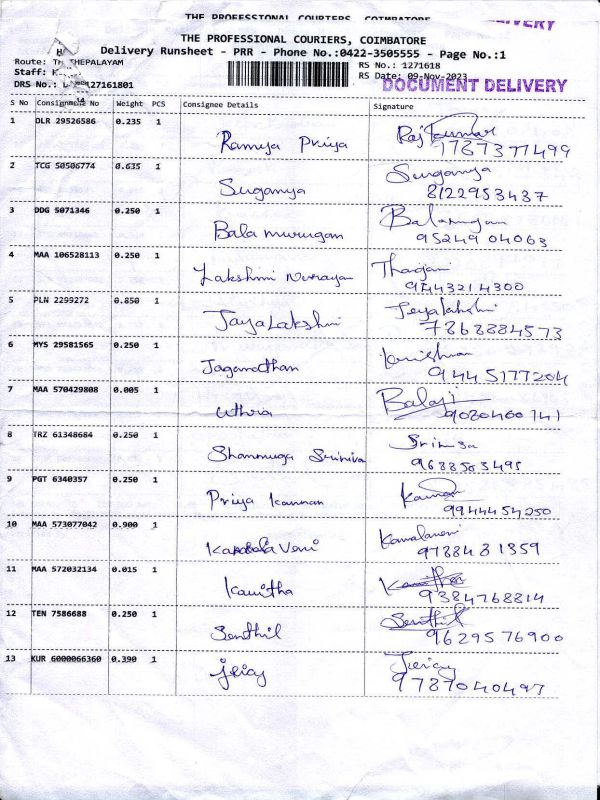 THE PROFESSIONAL COURIERS, COIMBATORE
DELIVERY
THE PROFESSIONAL COURIERS, COIMBATORE
Delivery Runsheet - PRR - Phone No.:0422-3505555 - Page No.:1
Route: THEPALAYAM RS No.: 1271618
Staff: RS Date: 09-Nov-2023
DRS No.: 27161801 DOCUMENT DELIVERY
S No Consignment No Weight PCS Consignee Details Signature
1 DLR 29526586 0.235 1 Ramya Priya Rajkumar
1787377499
2 TCG 50506774 0.635 1 Suganya Suganya
8122953437
3 DDG 5071346 0.250 1 Bala murugan Balamurugan
95249 04063
4 MAA 106528113 0.250 1 Lakshmi Narayan
9443214300
5 PLN 2299272 0.850 1 JayaLakshmi Jeyalakshmi
7868884573
6 MYS 29581565 0.250 1 Jaganathan Krishnan
9445177204
7 MAA 570429808 0.005 1 Uthra Balaji
9080460141
8 TRZ 61348684 0.250 1 Shanmuga Sriniva
9688503495
9 PGT 6340357 0.250 1 Priya Kannan Kannan
9944454250
10 MAA 573077042 0.900 1 Veni Kamalaveni
9788481359
11 MAA 572032134 0.015 1 Kavitha
9384768814
12 TEN 7586688 0.250 1 Senthil Senthil
9629576900
13 KUR 6000066360 0.390 1
9787040497